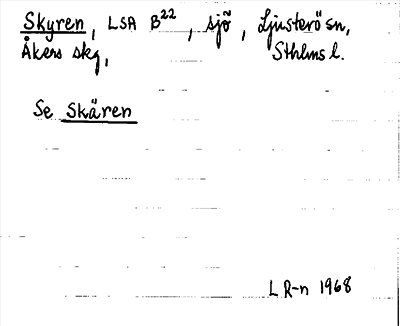 Skyren, LSA B22, sjö, Ljusterö sn,
Åkers skg, Sthlms l.
Se Skären
L R-n 1968